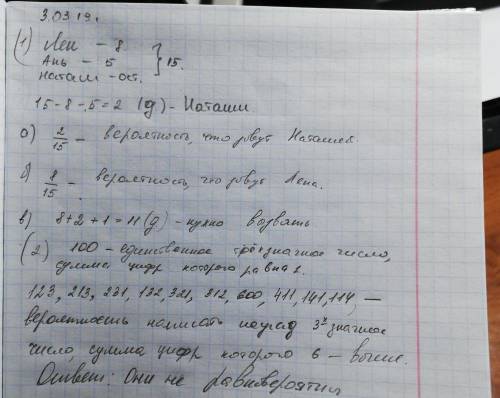 3.03.19.
(1) Лен – 8
Ань – 5 } 15.
Наташ – ост.
15 – 8 – 5 = 2 (д) – Наташи
а) 2/15 – вероятность, что зовут Наташей.
б) 8/15 – вероятность, что зовут Лена.
в) 8 + 2 + 1 = 11 (д) – нужно вызвать
(2) 100 – единственное трёхзначное число,
сумма цифр которого равна 1.
123, 213, 231, 132, 321, 312, 600, 411, 141, 114, –
вероятность написать наугад 3х значное
число, сумма цифр которого 6 – выше.
Ответ: Они не равновероятны